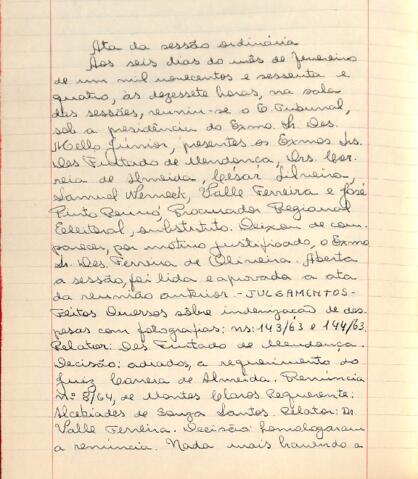 Ata da sessão ordinária
Aos seis dias do mês de fevereiro
de um mil novecentos e sessenta e
quatro, às dezessete horas, na sala
das sessões, reuniu-se o E. Tribunal,
sob a presidência do Exmo. Sr. Des.
Mello Júnior, presentes os Exmos Srs.
Des. Furtado de Mendonça, Drs. Cor-
reia de Almeida, César Silveira,
Samuel Werneck, Valle Ferreira e José
Pinto Procurador Regional
Eleitoral, substituto. Deixou de com-
parecer, por motivo justificado, o Exmo
Sr. Des. Ferreira de Oliveira. Aberta
a sessão, foi lida e aprovada a ata
da reunião anterior - JULGAMENTOS -
Feitos Diversos sôbre indenização de des-
pesas com fotografias: ns: 143/63 e 144/63.
Relator: Des. Furtado de Mendonça.
Decisão: adiados, a requerimento do
Juiz Correia de Almeida. Renúncia
n.º 8/64, de Montes Claros. Requerente:
Alcebíades de Souza Santos. Relator: Dr.
Valle Ferreira. Decisão: homologaram
a renúncia. Nada mais havendo a